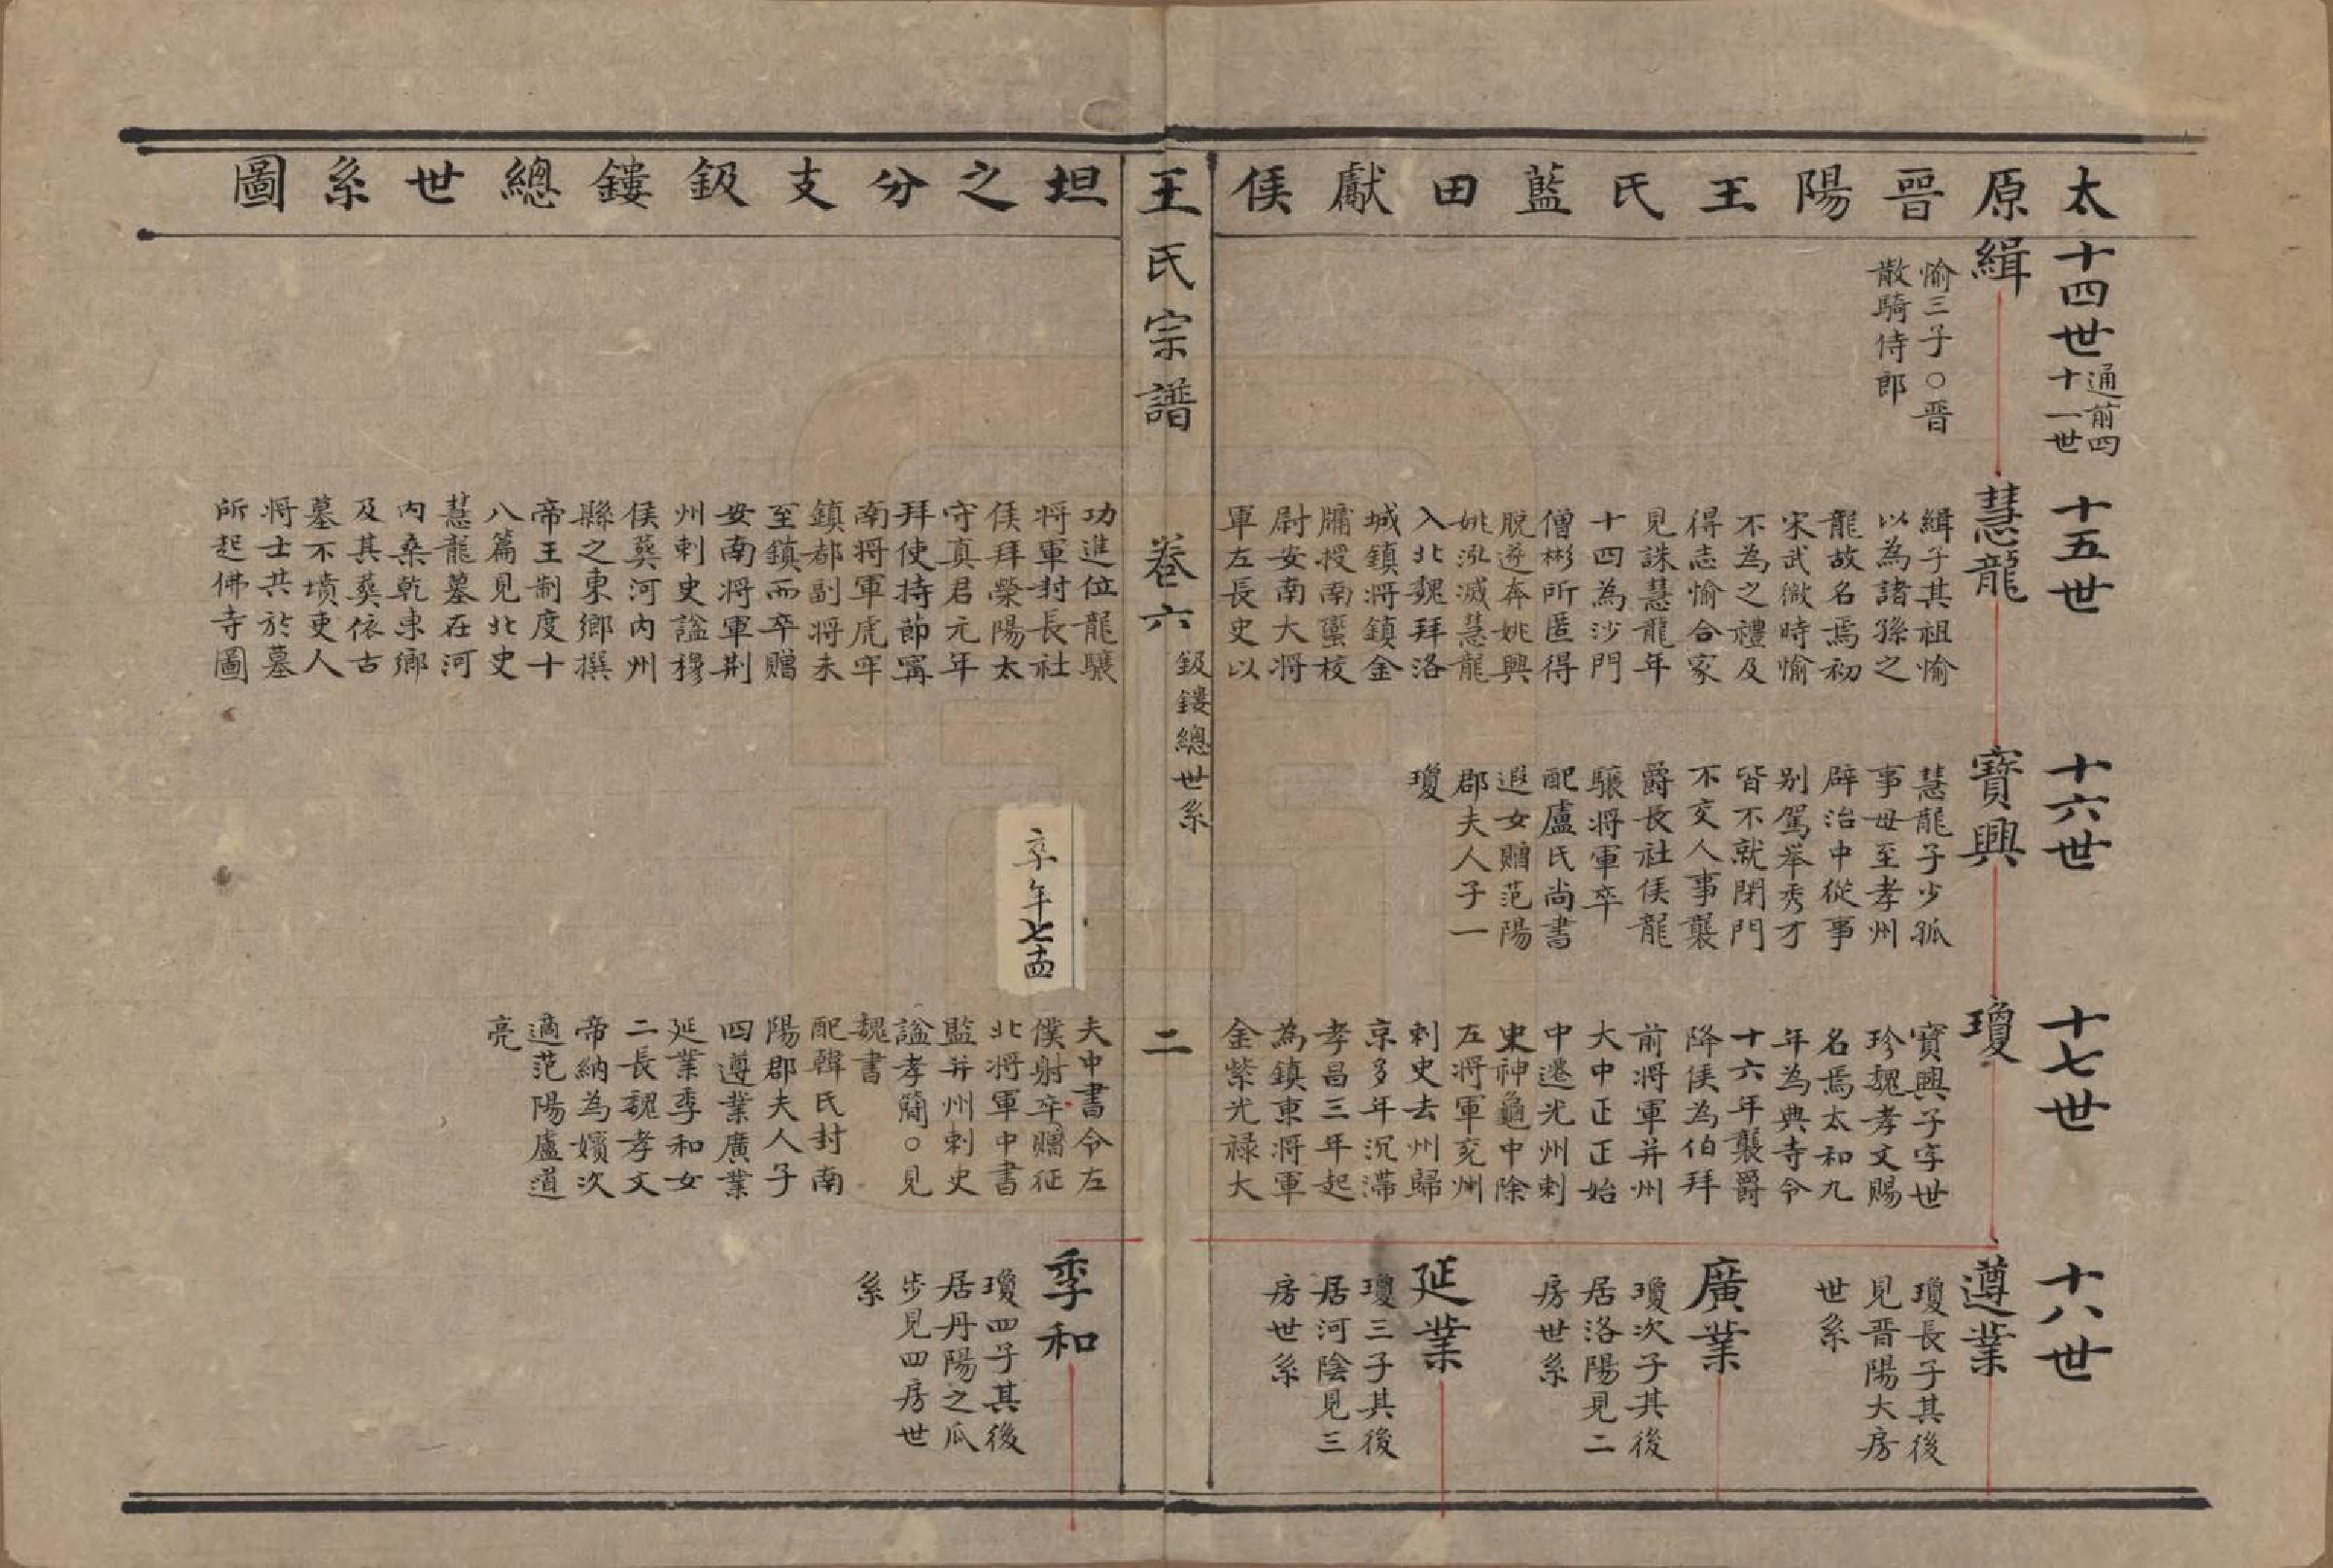 太原晉陽王氏藍田獻侯
坦之分支鈒鏤總世系圖
十四世
通前四
十一世
緝
愉三子○晉
散騎侍郎
十五世
慧龍
緝子其祖愉
以為諸孫之
龍故名焉初
宋武微時愉
不為之禮及
得志愉合家
見誅慧龍年
十四為沙門
僧彬所匿得
脫遂奔姚興
姚泓滅慧龍
入北魏拜洛
城鎮將鎮金
牗授南蠻校
尉安南大將
軍左長史以
功進位龍驤
將軍封長社
侯拜滎陽太
守真君元年
拜使持節寧
南將軍虎牢
鎮都副將未
至鎮而卒贈
安南將軍荆
州刺史諡穆
侯葬河內州
縣之東鄉撰
帝王制度十
八篇見北史
慧龍墓在河
內桑乾東鄉
及其葬依古
墓不墳吏人
將士共於墓
所起佛寺圖
十六世
寶興
慧龍子少孤
事母至孝州
辟治中從事
别駕舉秀才
皆不就閉門
不交人事襲
爵長社侯龍
驤將軍卒
配盧氏尚書
遐女贈范陽
郡夫人子一
瓊
十七世
瓊
寶興子字世
珍魏孝文賜
名焉太和九
年為典寺令
十六年襲爵
降侯為伯拜
前將軍并州
大中正正始
中遷光州刺
史神龜中除
左將軍兗州
刺史去州歸
京多年沉滯
孝昌三年起
為鎮東將軍
金紫光祿大
夫中書令左
僕射卒贈征
北將軍中書
監并州刺史
諡孝簡○見
魏書
配韓氏封南
陽郡夫人子
四遵業廣業
延業季和女
二長魏孝文
帝納為嬪次
適范陽盧道
亮
卒年七十四
十八世
遵業
瓊長子其後
見晋陽大房
世系
廣業
瓊次子其後
居洛陽見二
房世系
延業
瓊三子其後
居河陰見三
房世系
季和
瓊四子其後
居丹陽之瓜
步見四房世
系
王氏宗譜
卷六
鈒鏤總世系
二